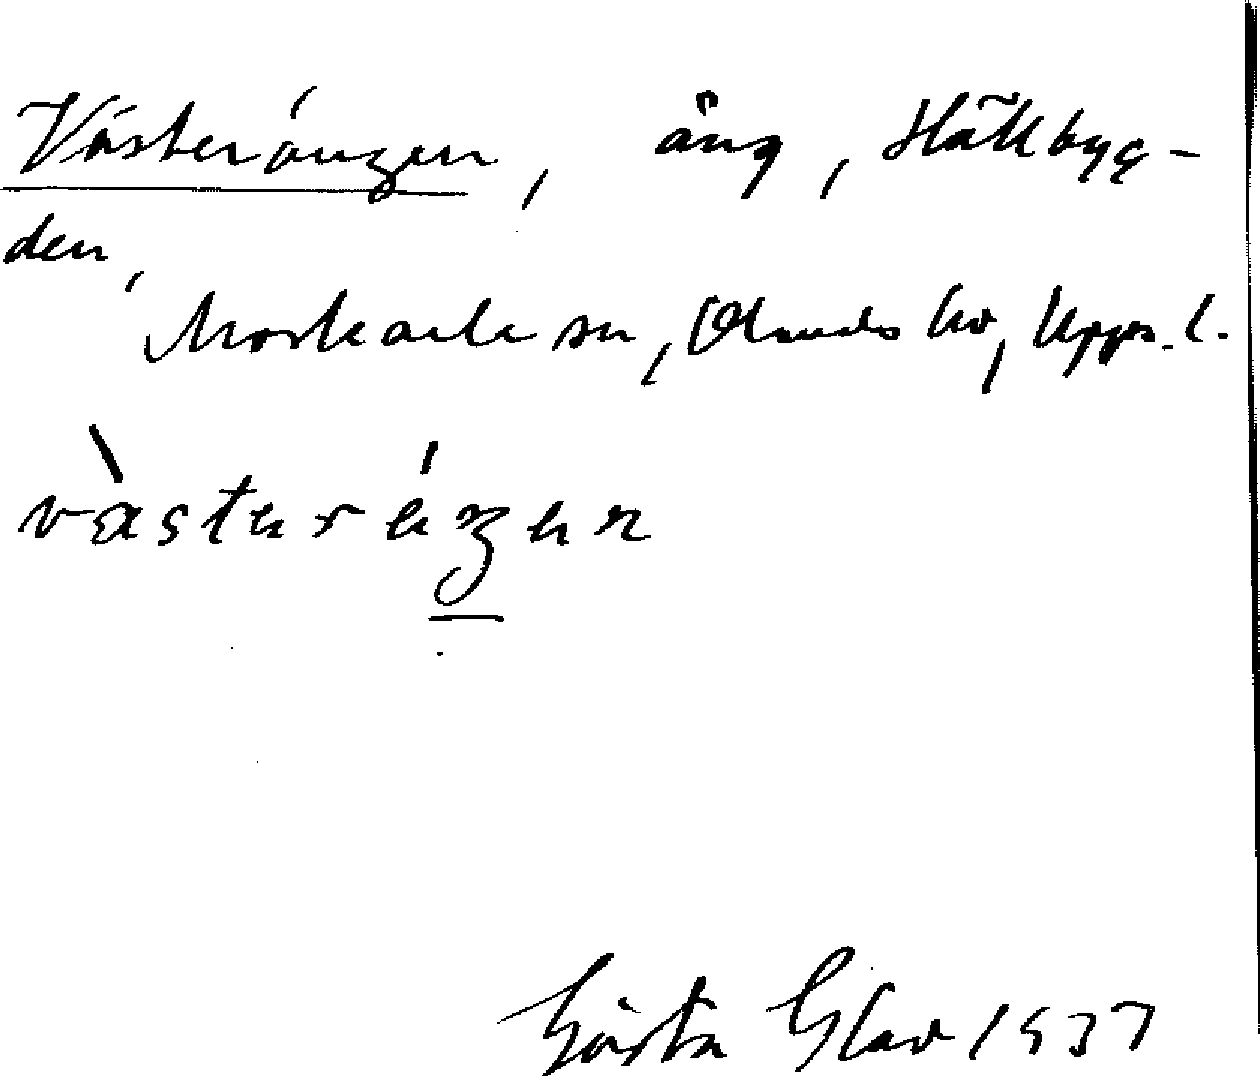 Västerängen, äng, Hällbyg-
den,
Morkarla sn, Olands hd, Upps. l.
Gösta Glad 1937